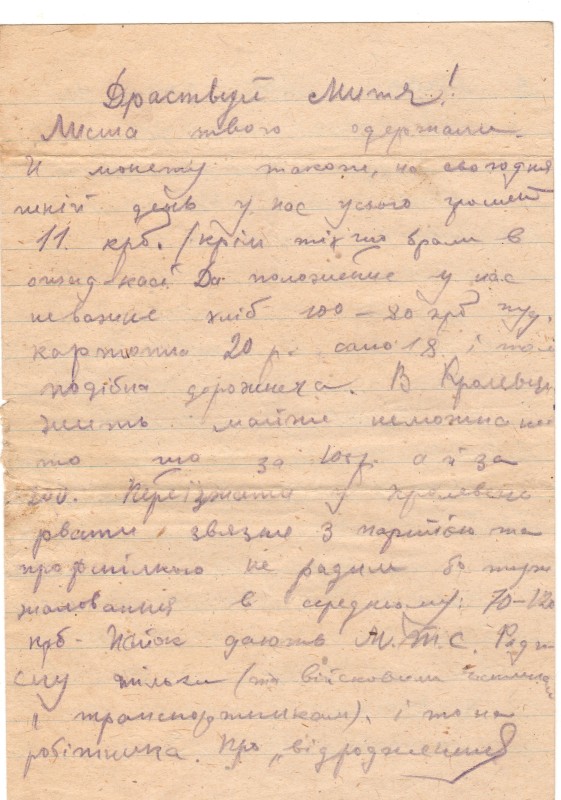 Драствуй Митя!
Листа твого одержали.
И монету також, на сьогодня
шній день у нас усього грошей
11 крб. (крім тих що брали в
касі. Да положеніе у нас
неважне хліб 100–80 крб пуд.
картопля 20 р. сало 18 і том
подібна дорожнеча. В Кролевці
жить майже неможна не
то що за 100 р. а й за
200. Переїзжати у Кролевець
рвати звязке з партією та
профспілкою не радим бо тут
жаловання в середньому: 70–120
крб. Пайок дають М.Т.С. Радго
спу тільки (та військовим
і транспортникам). і то на
робітника. Про „відродження